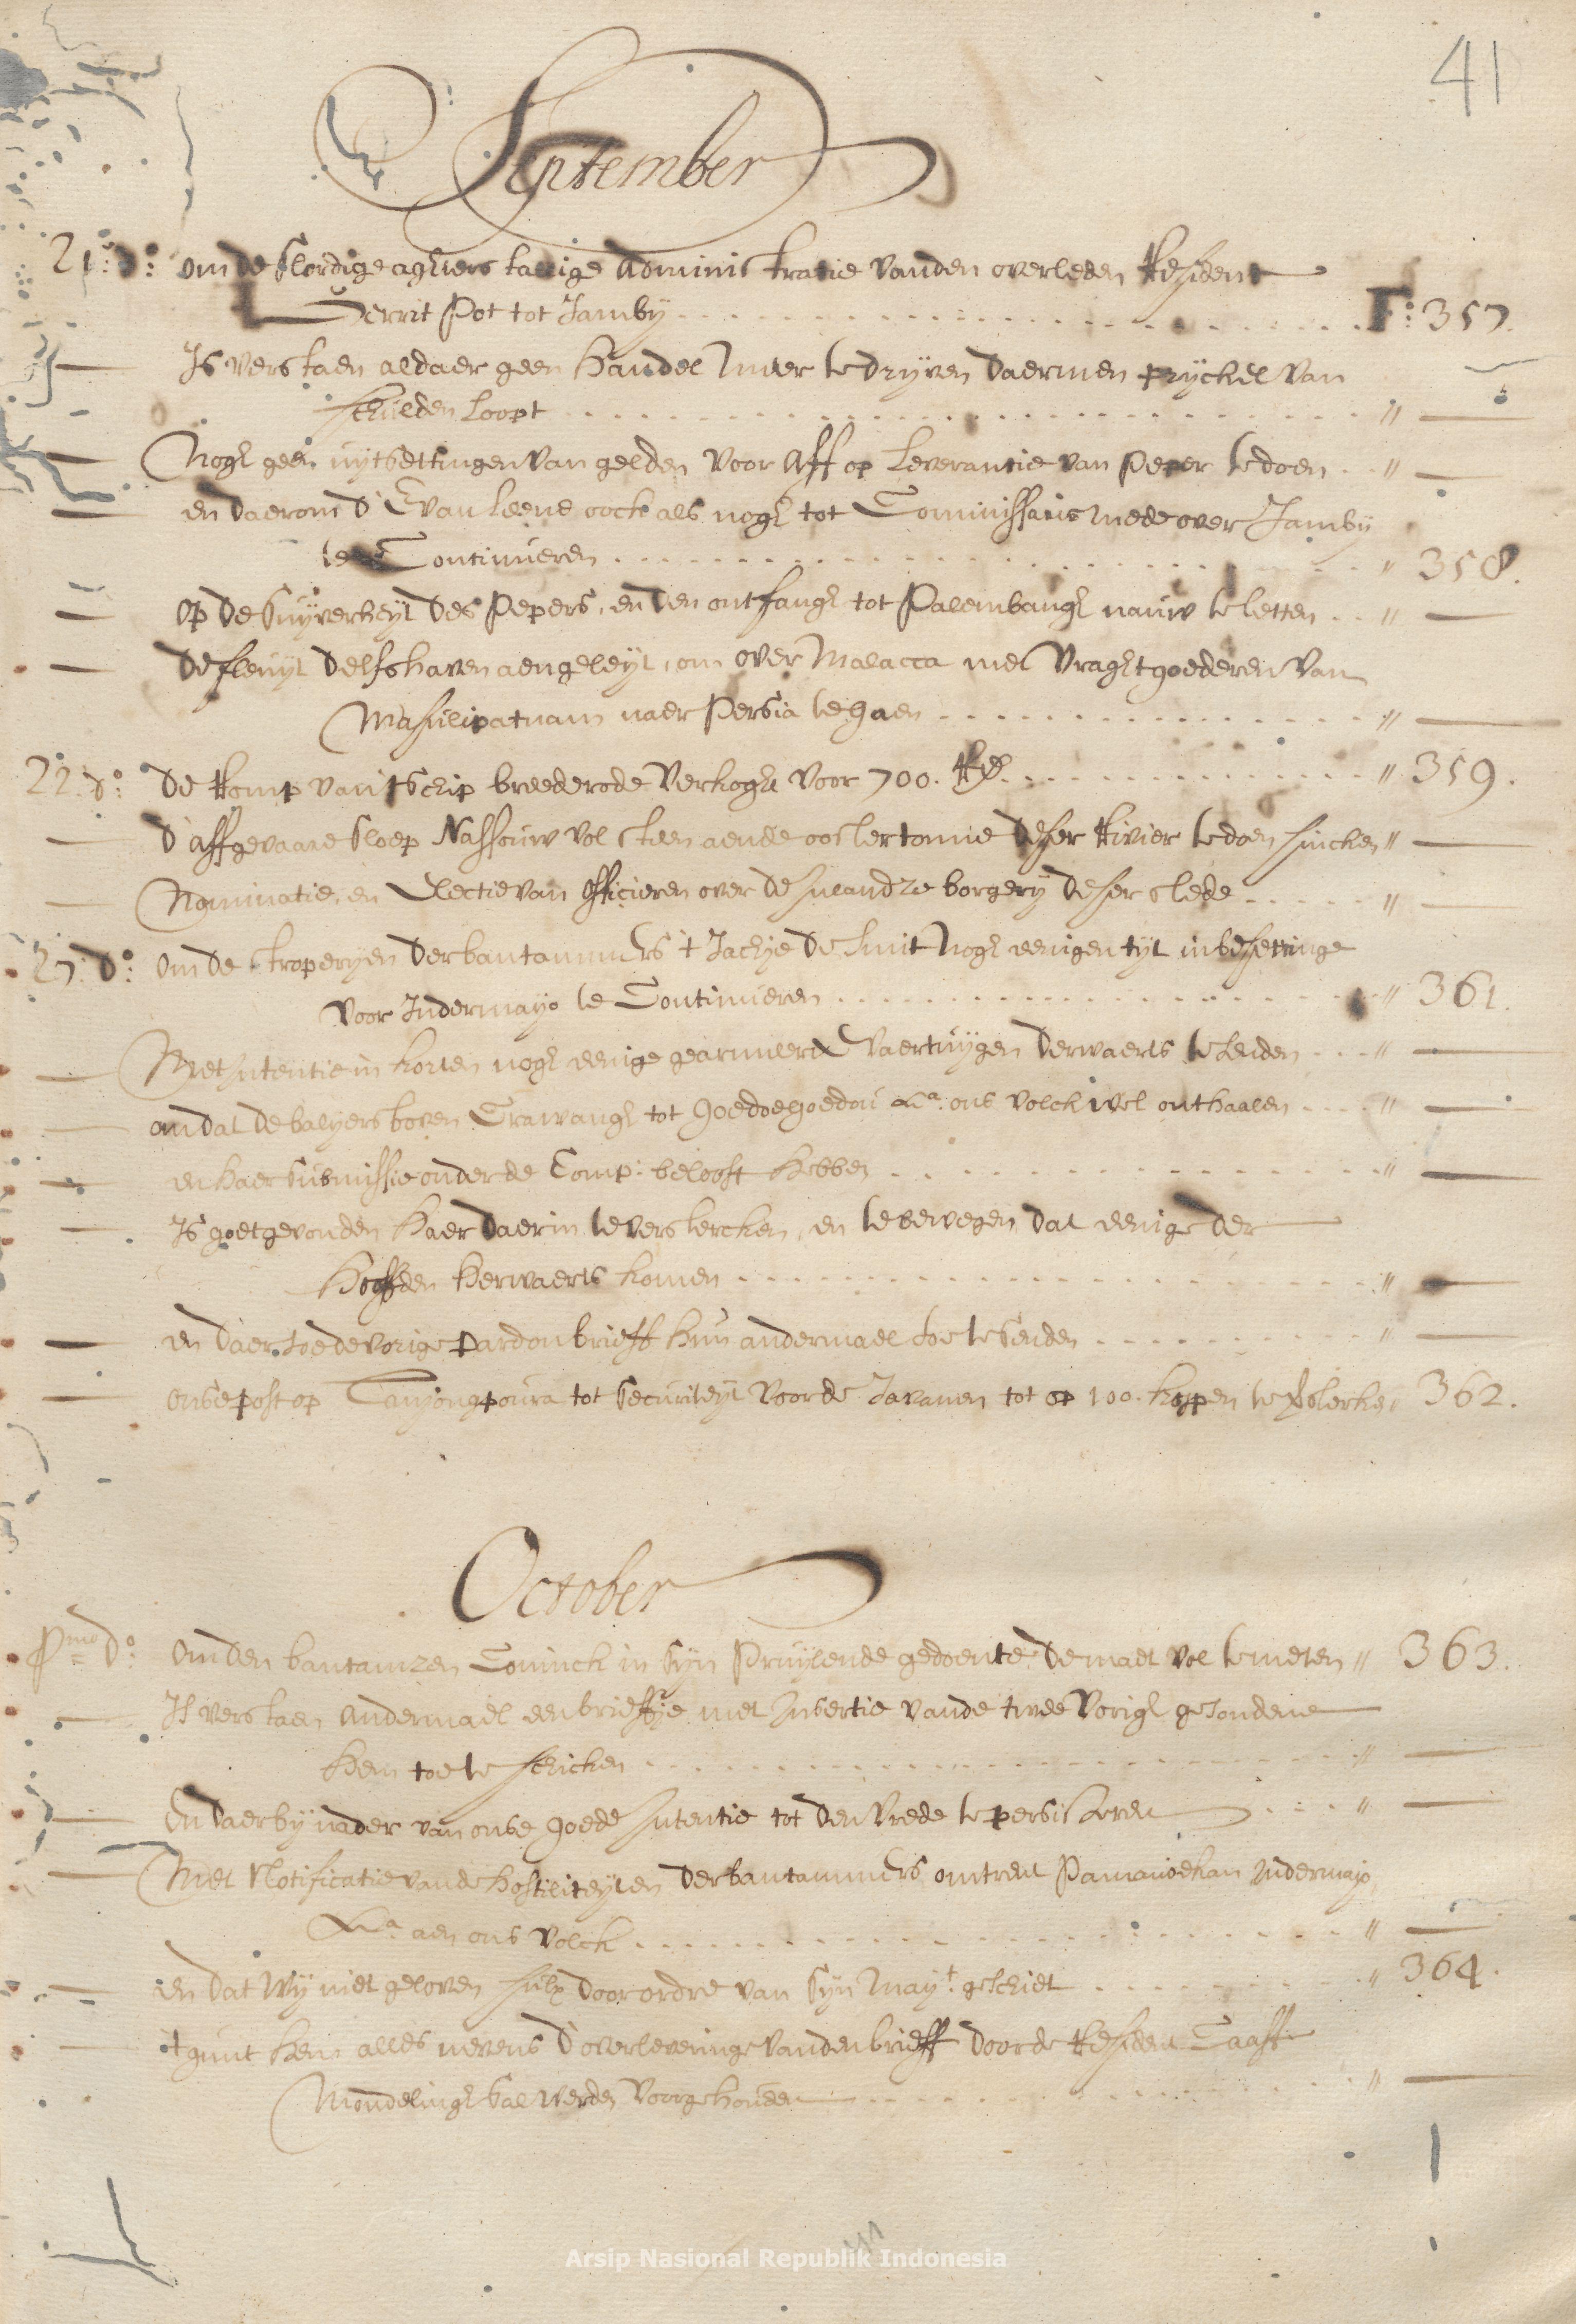 41
September
21: do: om de slordige aghterstallige administratie vanden overleden Resident
Gerrit Pot tot Jamby F: 357.
— Is verstaen aldaer geen handel meer te dryven daermen perijckel van
schulden loopt " —
— Nogh geen uytsettingen van gelden voor aff op leverantie van peper te doen " —
— en daerom d' E van Leene oock als nogh tot Commissaris mede over Jamby
te Continueren " 358.
— op de suyverheyt des pepers, en den ontfangh tot Palembangh nauw te letten " —
— de fleuyt Delfshaven aengeleyt, om over Malacca met vraghtgoederen van
Masulipatnam naer Persia te gaen " —
22. do: de Romp van 't schip breederode verkoght voor 700. Rx. " 359.
— d' affgevaare sloep Nassouw vol steen aende ooster tonne deser Rivier te doen sincken " —
— Nominatie, en Electie van officieren over de Inlandze borgery deser stede " —
27: do: om de stroperyen der bantammers 't Jachje de Smit nogh eenigen tijt in besettinge
voor Indermayo te Continueren " 361.
— Met intentie in korten nogh eenige gearmeerde vaertuygen derwaerts te senden " —
— omdat de balyers boven Crawangh tot goedoegoedou &a. ons volck wel onthaalen " —
— en haer submissie onder de Comp: belooft hebben " —
— Is goetgevonden haer daerin te verstercken, en te bewegen dat eenige der
hoofden herwaerts komen " —
— en daer toe de vorige pardonbrieff hun andermael toe te senden " —
— onse post op Tanjongpoura tot securiteyt voor de Javanen tot op 100. koppen te verstercken " 362.
October
Pmo do: om den bantamzen Coninck in syn pruylende gedoente de maet vol te meten " 363.
— Is verstaen andermael een briefje met Insertie vande twee vorigh gesondene
hem toe te schicken " —
— En daer by nader van onse goede Intentie tot den vrede te persisteren " —
— Met Notificatie vande hostiliteyten der bantammers omtrent Pamanoekan Indermayo,
&a. aen ons volck " —
— en dat wy niet geloven sulx door ordre van syn Mayt. geschiet " 364.
— 't gunt hem alles nevens d' overleveringe vanden brieff door de Resident Caaff
Mondelingh sal werden voorgehouden " —
Arsip Nasional Republik Indonesia